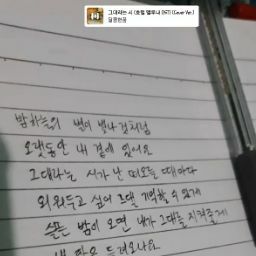 그대라는 시 (호텔 델루나 OST) (Cover Ver.)
달콤한꿈
밤하늘의 별이 빛나는 것처럼
오랫동안 내 곁에 있어요
그대라는 시가 난 떠오를 때마다
외워두고 싶어 그댈 기억할 수 있게
슬픈 밤이 오면 내가 그대를 지켜줄게
내 맘 들려오나요